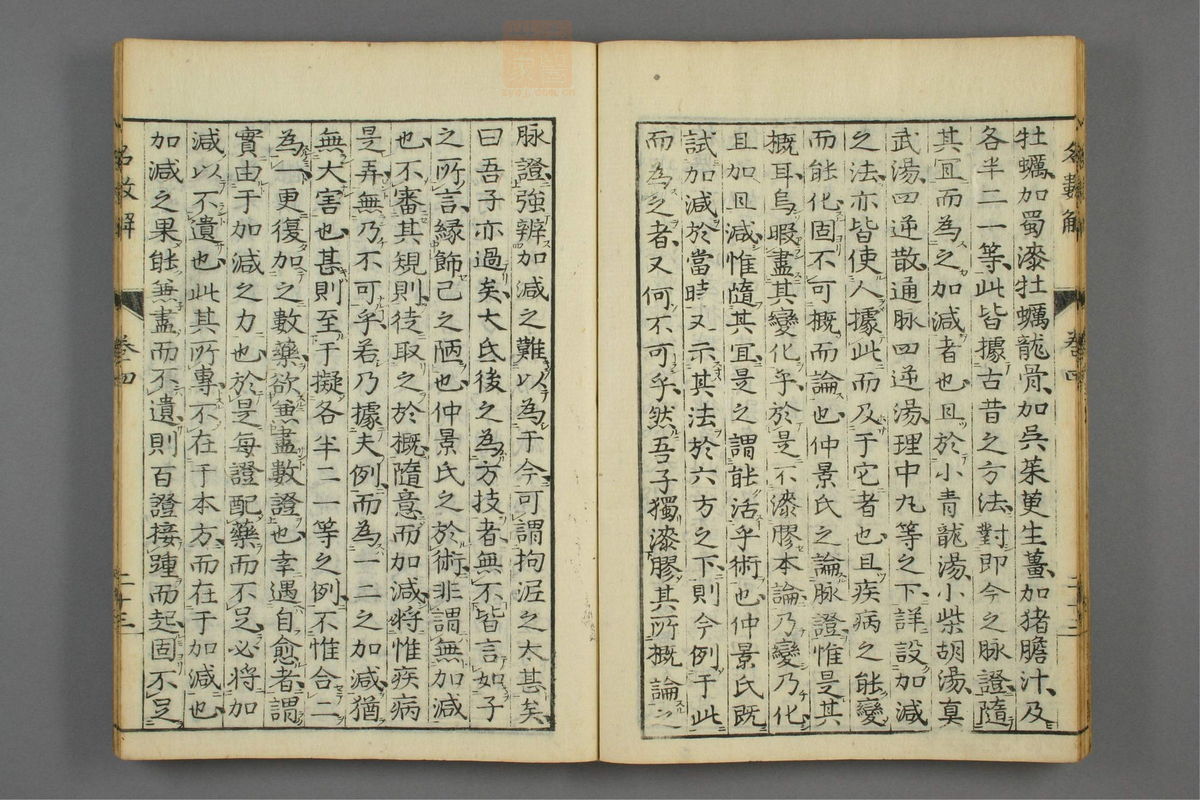 牡蠣加蜀漆牡蠣龍骨加呉茱萸生薑加猪膽汁及
各半二一等此皆據古昔之方法對即今之脉證隨
其冝而為之加減者也且於小青龍湯小柴胡湯真
武湯四逆散通脉四逆湯理中丸等之下詳設加減
之法亦皆使人據此而及于它者也且疾病之能變
而能化固不可概而論也仲景氏之論脉證惟是其
概耳烏暇盡其變化乎於是不漆膠本論乃變乃化
且加且減惟隨其冝是之謂能活乎術也仲景氏既
試加減於當時又示其法於六方之下則今例于此
而為之者又何不可乎然吾子獨漆膠其所概論之
脉證強辨加減之難以為于今可謂拘泥之太甚矣
曰吾子亦過矣大氐後之為方技者無不皆言如子
之所言縁飾己之陋也仲景氏之於術非謂無加減
也不審其規則徒取之於概隨意而加減將惟疾病
是弄無乃不可乎若乃據夫例而為一二之加減猶
無大害也甚則至于擬各半二一等之例不惟合二
為一更復加之數藥欲無盡數證也幸遇自愈者謂
實由于加減之力也於是每證配藥而不足必將加
減以不遺也此其所專不在于本方而在于加減也
加減之果能無盡而不遺則百證接踵而起固不足
卷四
二十三